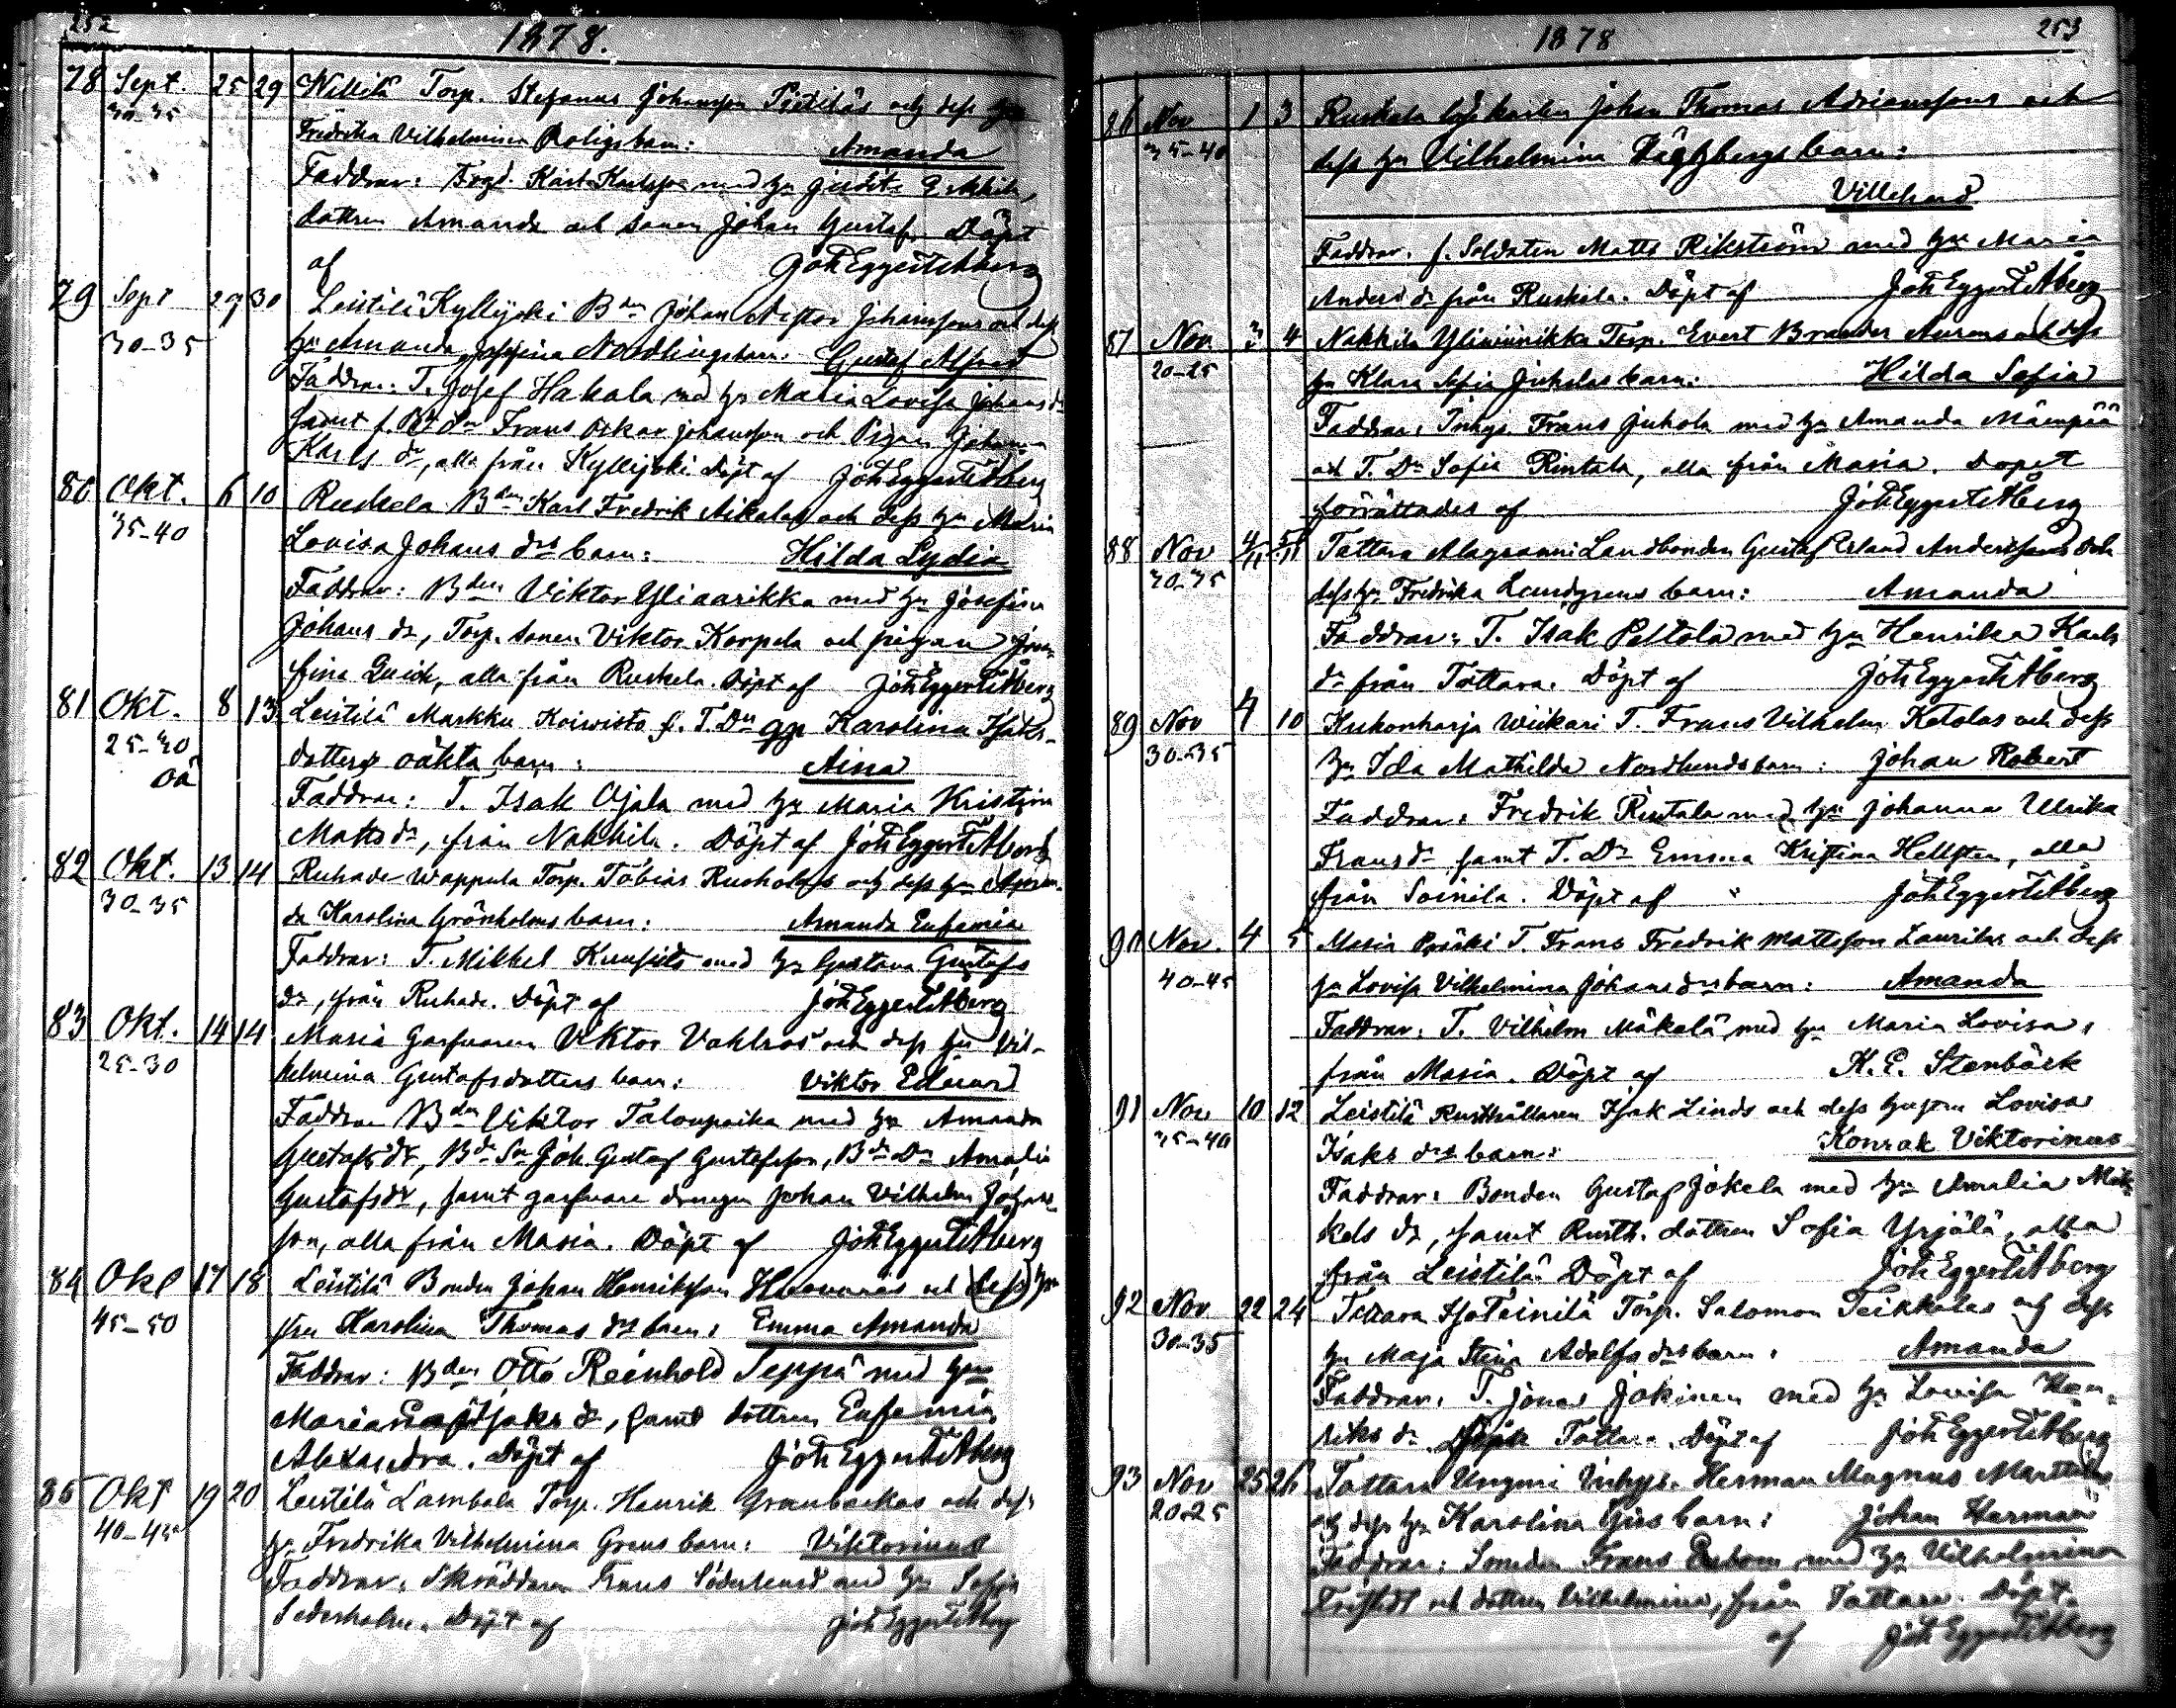 252
1878.
78 Sept. 25 29 Willilä Torp. Stefanus Johansson och dess hu
30-35 Fredrika Vilhelmina barn: Amanda
Faddrar: Karl Karlsson med hu
dottren Amanda och sonen Johan Gustaf. Döpt
af Joh Eggert Åberg
79 Sept 29 30 Leistilä Kyllijoki Bden Johan Nestor Johanssons och dess
30-35 hu Amanda Josefina Nordlings barn: Gustaf Alfred
Faddrar: T. Josef Hakala med hu Maria Lovisa Johans dr
samt f. Frans Oskar Johansson och Pigan Johanna
Karls dr, alla från Kyllijoki. Döpt af Joh Eggert Åberg
80 Okt. 6 10 Ruskela Bden Karl Fredrik och dess hu Maria
35-40 Lovisa Johans drs barn: Hilda Lydia
Faddrar: Bden Viktor Yliaarikka med hu Josefina
Johans dr, Torp. sonen Viktor Korpela och pigan
fina alla från Ruskela. Döpt af Joh Eggert Åberg
81 Okt. 8 13 Leistilä Markku Koivisto f. T. Dn Karolina Isaks-
25-30 dotters oäkta barn: Aina
oä
Faddrar: T. Isak Ojala med hu Maria Kristina
Matts dr, från Nakkila. Döpt af Joh Eggert Åberg
82 Okt. 13 14 Ruhade Wappula Torp. Tobias och dess hu
30-35 Karolina Grönholms barn: Amanda Eufemia
Faddrar: T. Mikkel med hu Gustava Gustafs
dr, från Ruhade. Döpt af Joh Eggert Åberg
83 Okt. 14 14 Masia Garfvaren Viktor Vahlros och dess hu Vil-
25-30 helmina Gustafsdotters barn: Viktor Edvard
Faddrar Bden Viktor Taloupoika med hu Amanda
Gustafs dr, Bd Sn Joh. Gustaf Gustafsson, Bd Dn Amalia
Gustafsdr, samt garfvare drengen Johan Vilhelm Johans-
son, alla från Masia. Döpt af Joh Eggert Åberg
84 Okt 17 18 Leistilä Bonden Johan Henriksson och dess hu
45-50 Karolina Thomas drs barn: Emma Amanda
Faddrar: Bden Otto Reinhold Seppä med hu
Maria Isaks dr, samt dottren Eufemia
Alexandra. Döpt af Joh Eggert Åberg
85 Okt 19 20 Leistilä Lambala Torp. Henrik Granbackas och dess
40-45 hu Fredrika Vilhelmina Grens barn: Viktorinus
Faddrar: Skräddaren Frans Söderlund med hu Sofia
Sederholm. Döpt af Joh Eggert Åberg
1878 253
86 Nov 1 3 Ruskela Johan Thomas Adrianssons och
35-40 dess hu Vilhelmina barn:
Villehard
Faddrar. f. Soldaten Matts Rikström med hu Maria
Anders dr från Ruskela. Döpt af Joh Eggert Åberg
87 Nov 3 4 Nakkila Torp. Evert Brander och dess
20-25 hu Klara Sofia Juholas barn: Hilda Sofia
Faddrar: Inhys. Frans Juhola med hu Amanda Mäenpää
och T. Dr Sofia Rintala, alla från Masia. Dopet
förrättades af Joh Eggert Åberg
88 Nov 4/11 5/11 Tattara Alagranni Landbonden Gustaf Erland Anderssons och
30-35 dess hu Fredrika Lundgrens barn: Amanda
Faddrar: T. Isak Peltola med hu Henrika Karls
dr från Tattara. Döpt af Joh Eggert Åberg
89 Nov 4 10 Kukonharja Wiikari T. Frans Vilhelm Ketolas och dess
30-35 hu Ida Mathilda Nordlunds barn: Johan Robert
Faddrar: Fredrik Rintala med hu Johanna Ulrika
Fransdr samt T. Dr Emma Kristina Hellsten, alla
från Soinila. Döpt af Joh Eggert Åberg
90 Nov. 4 5 Masia T. Frans Fredrik Mattsson Laurilas och dess
40-45 hu Lovisa Vilhelmina Johans drs barn: Amanda
Faddrar: T. Vilhelm Mäkelä med hu Maria Lovisa,
från Masia. Döpt af K. E. Stenbäck
91 Nov 10 12 Leistilä Rusthållaren Isak Linds och dess hustru Lovisa
35-40 Isaks drs barn: Konrak Viktorinus
Faddrar: Bonden Gustaf Jokela med hu Amalia Mik-
kels dr, samt Rusth. dottren Sofia Yrjälä, alla
från Leistilä. Döpt af Joh Eggert Åberg
92 Nov 22 24 Tattara Torp. Salomon Teikkalas och dess
30-35 hu Maja Stina Adolfs drs barn: Amanda
Faddrar: T. Jonas Jokinen med hu Lovisa Hen-
riks dr Tattara. Döpt af Joh Eggert Åberg
93 Nov 25 26 Tattara Inhys. Herman Magnus
20-25 och dess hu Karolina barn: Johan Herman
Faddrar: Frans med hu Vilhelmina
och dottren Vilhelmina, från Tattara. Döpt
af Joh Eggert Åberg